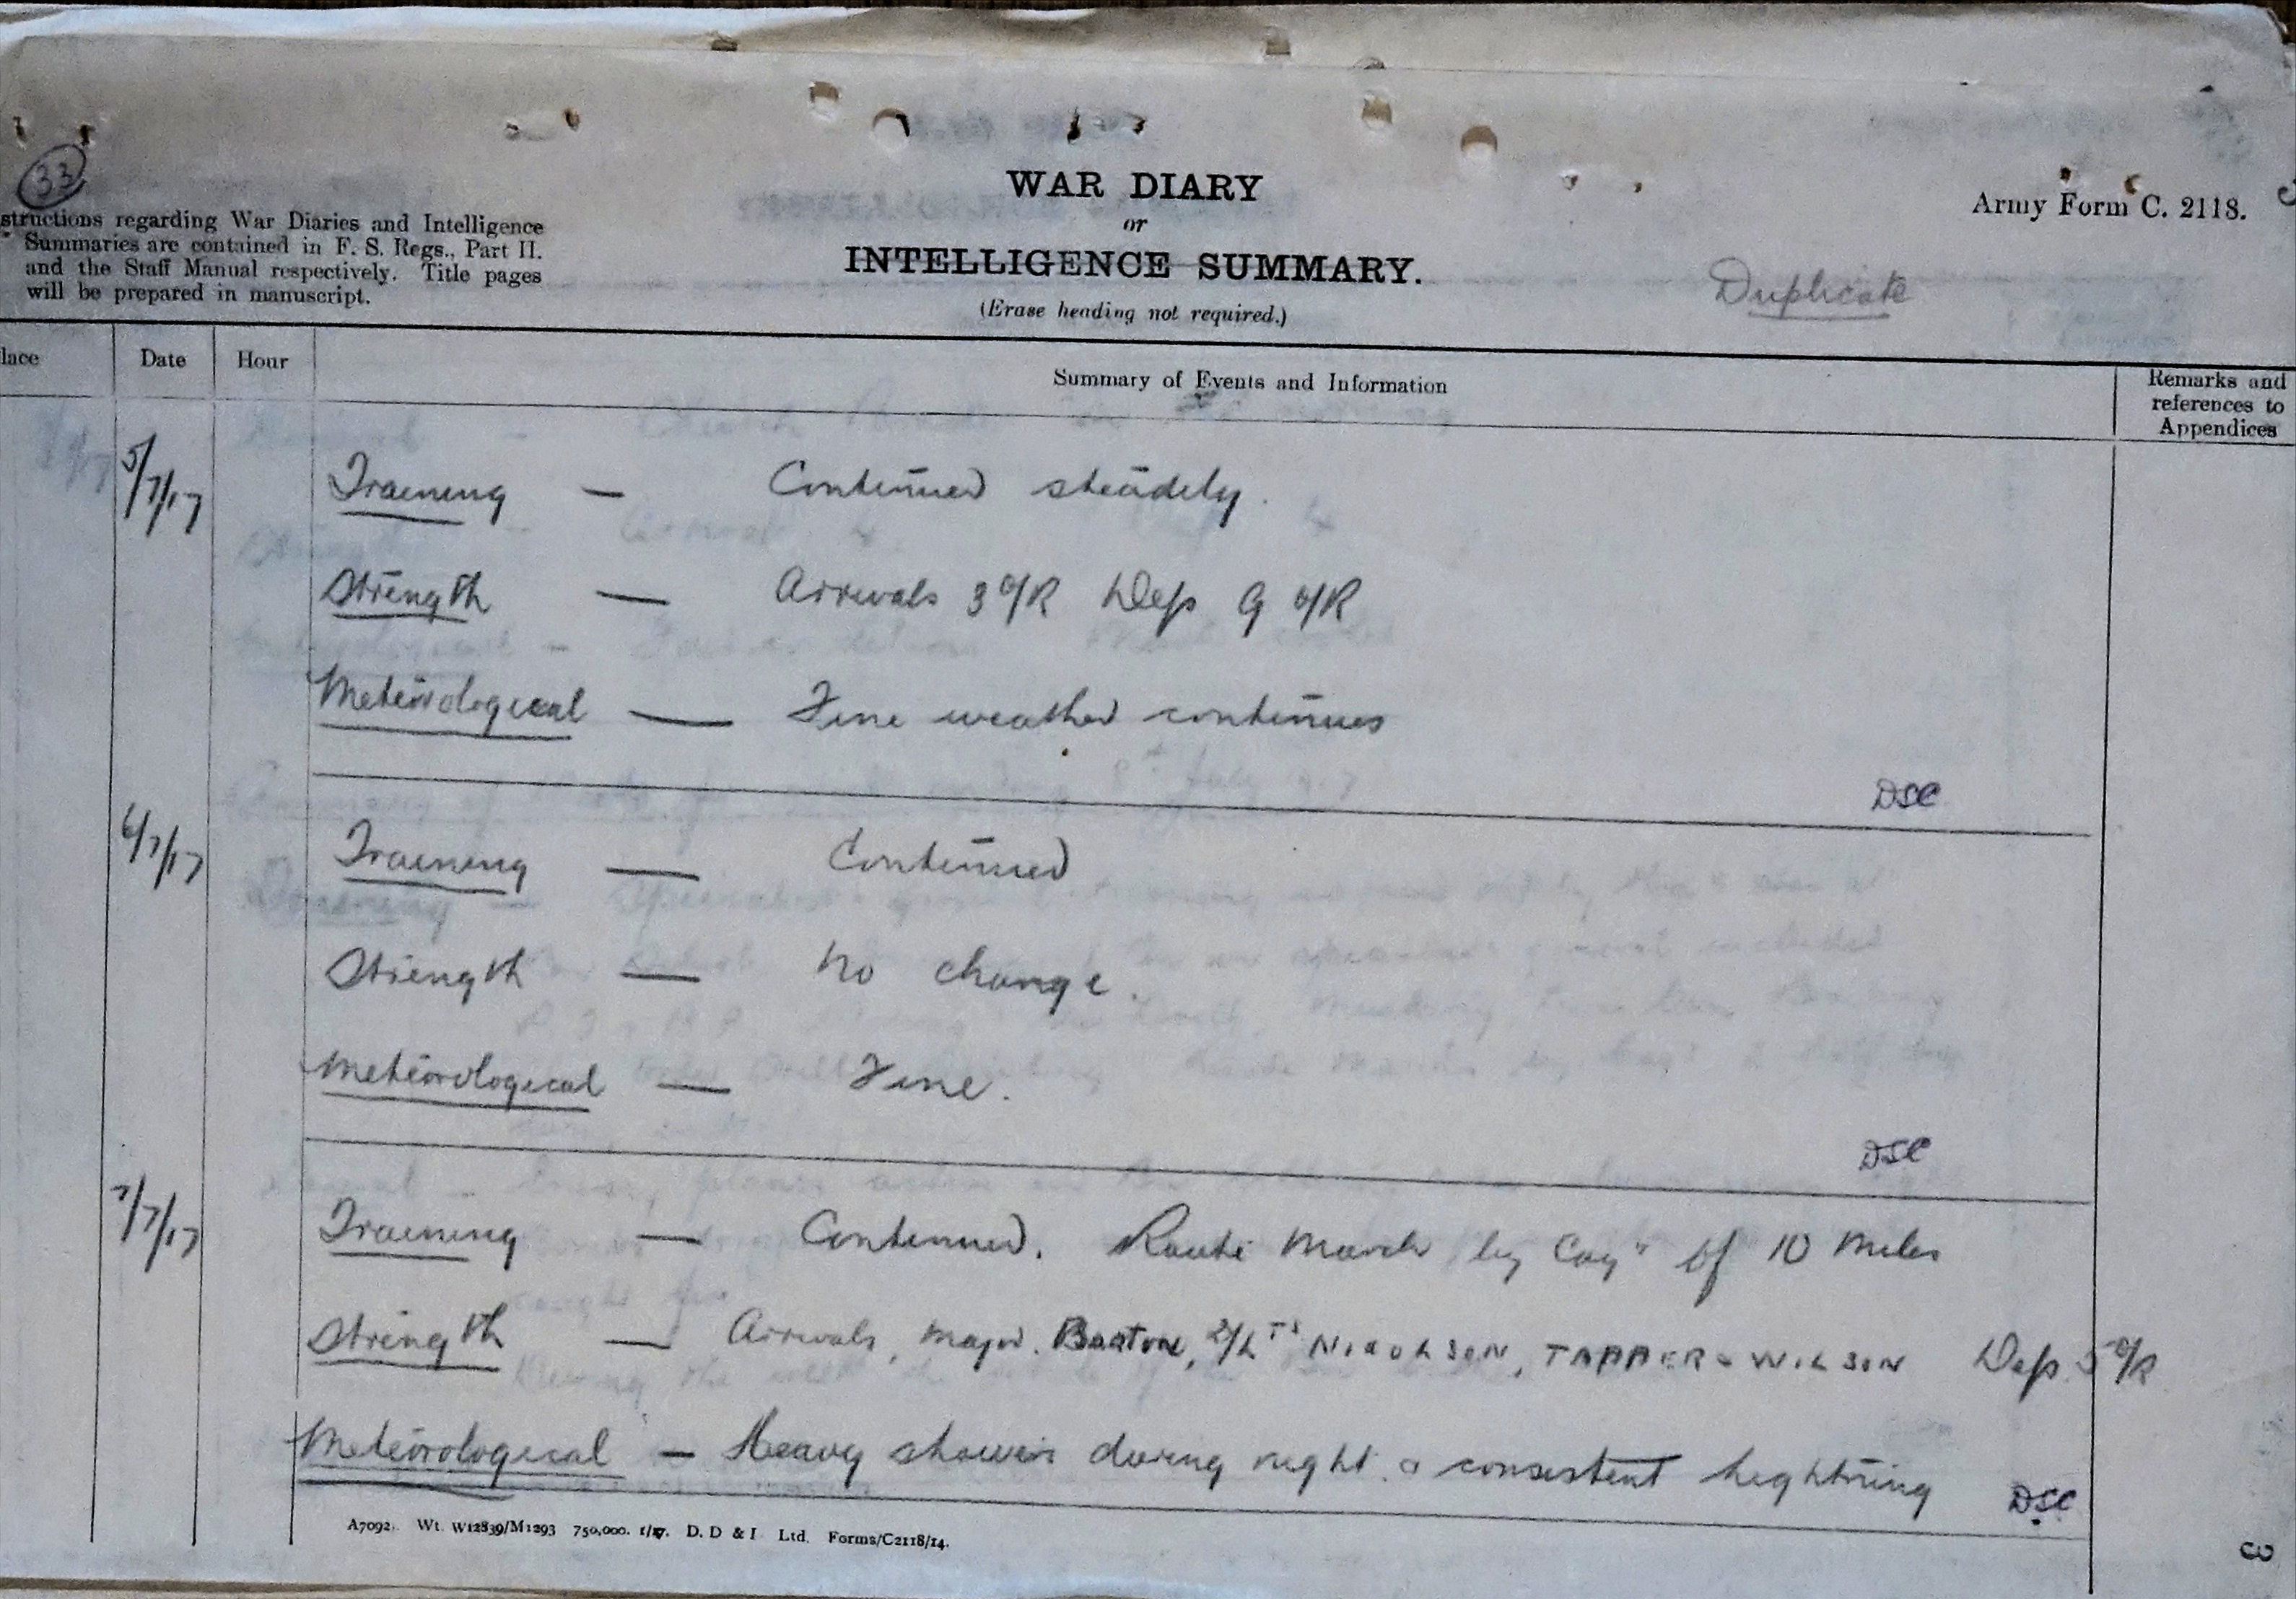 33
structions regarding War Diaries and Intelligence
Summaries are contained in F. S. Regs., Part II.
and the Staff Manual respectively. Title pages
will be prepared in manuscript.
WAR DIARY
or
INTELLIGENCE SUMMARY.
(Erase heading not required.)
Army Form C. 2118.
Duplicate
lace Date Hour Summary of Events and Information Remarks and
references to
Appendices
5/7/17 Training — Continued steadily.
Strength — Arrivals 3 O/R Dep 9 O/R
Meteorological — Fine weather continues
DSC
6/7/17 Training — Continued
Strength — No change.
Meteorological — Fine.
DSC
7/7/17 Training — Continued. Route March by Coys of 10 Miles
Strength — Arrivals, Major. Barton, 2/Lts NICHOLSON, TAPPER & WILSON Dep 5 O/R
Meteorological — Heavy showers during night & consistent lightning DSC
A7092. Wt. W12839/M1293 750,000. 1/17. D. D & I Ltd. Forms/C2118/14.
3